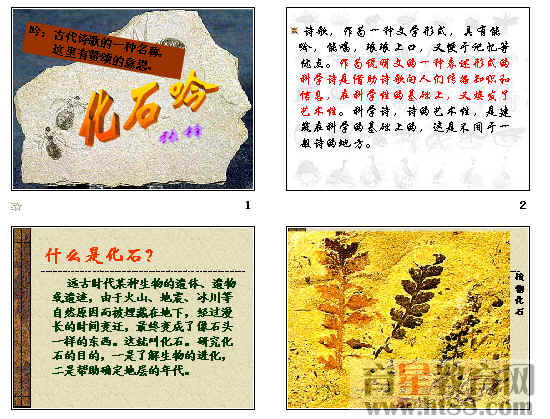 吟：古代诗歌的一种名称。
这里有赞颂的意思。
化石吟
张锋
1
诗歌，作为一种文学形式，具有能
吟、能唱，琅琅上口，又便于记忆等
优点。作为说明文的一种表述形式的
科学诗是借助诗歌向人们传播知识和
信息，在科学性的基础上，又焕发了
艺术性。科学诗，诗的艺术性，是建
筑在科学的基础上的，这是不同于一
般诗的地方。
2
什么是化石?
远古时代某种生物的遗体、遗物
或遗迹，由于火山、地震、冰川等
自然原因而被埋藏在地下，经过漫
长的时间变迁，最终变成了像石头
一样的东西。这就叫化石。研究化
石的目的，一是了解生物的进化，
二是帮助确定地层的年代。
植物化石
育星教育网
www.ht88.com